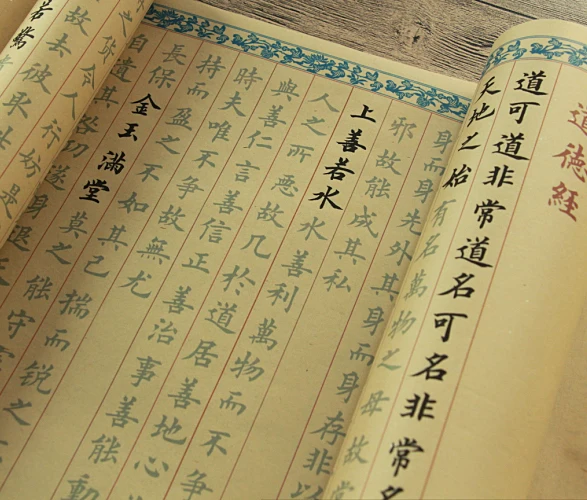 道德經
道可道非常道名可名非常名
天地之始有名萬物之母故常
身而身先外其身而身存非以
邪故能成其私
上善若水水善利萬物而不爭
人之所惡故几於道居善地心
與善仁言善信正善治事善能動
時夫唯不爭故無尤
持而盈之不如其已揣而锐之
長保金玉滿堂莫之能守
自遺其咎功遂身退天
之貨令人行妨是
故去彼取此
若驚